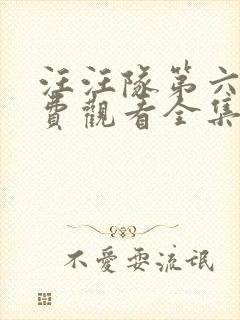 汪汪隊第六
費觀看全集
不愛耍流氓